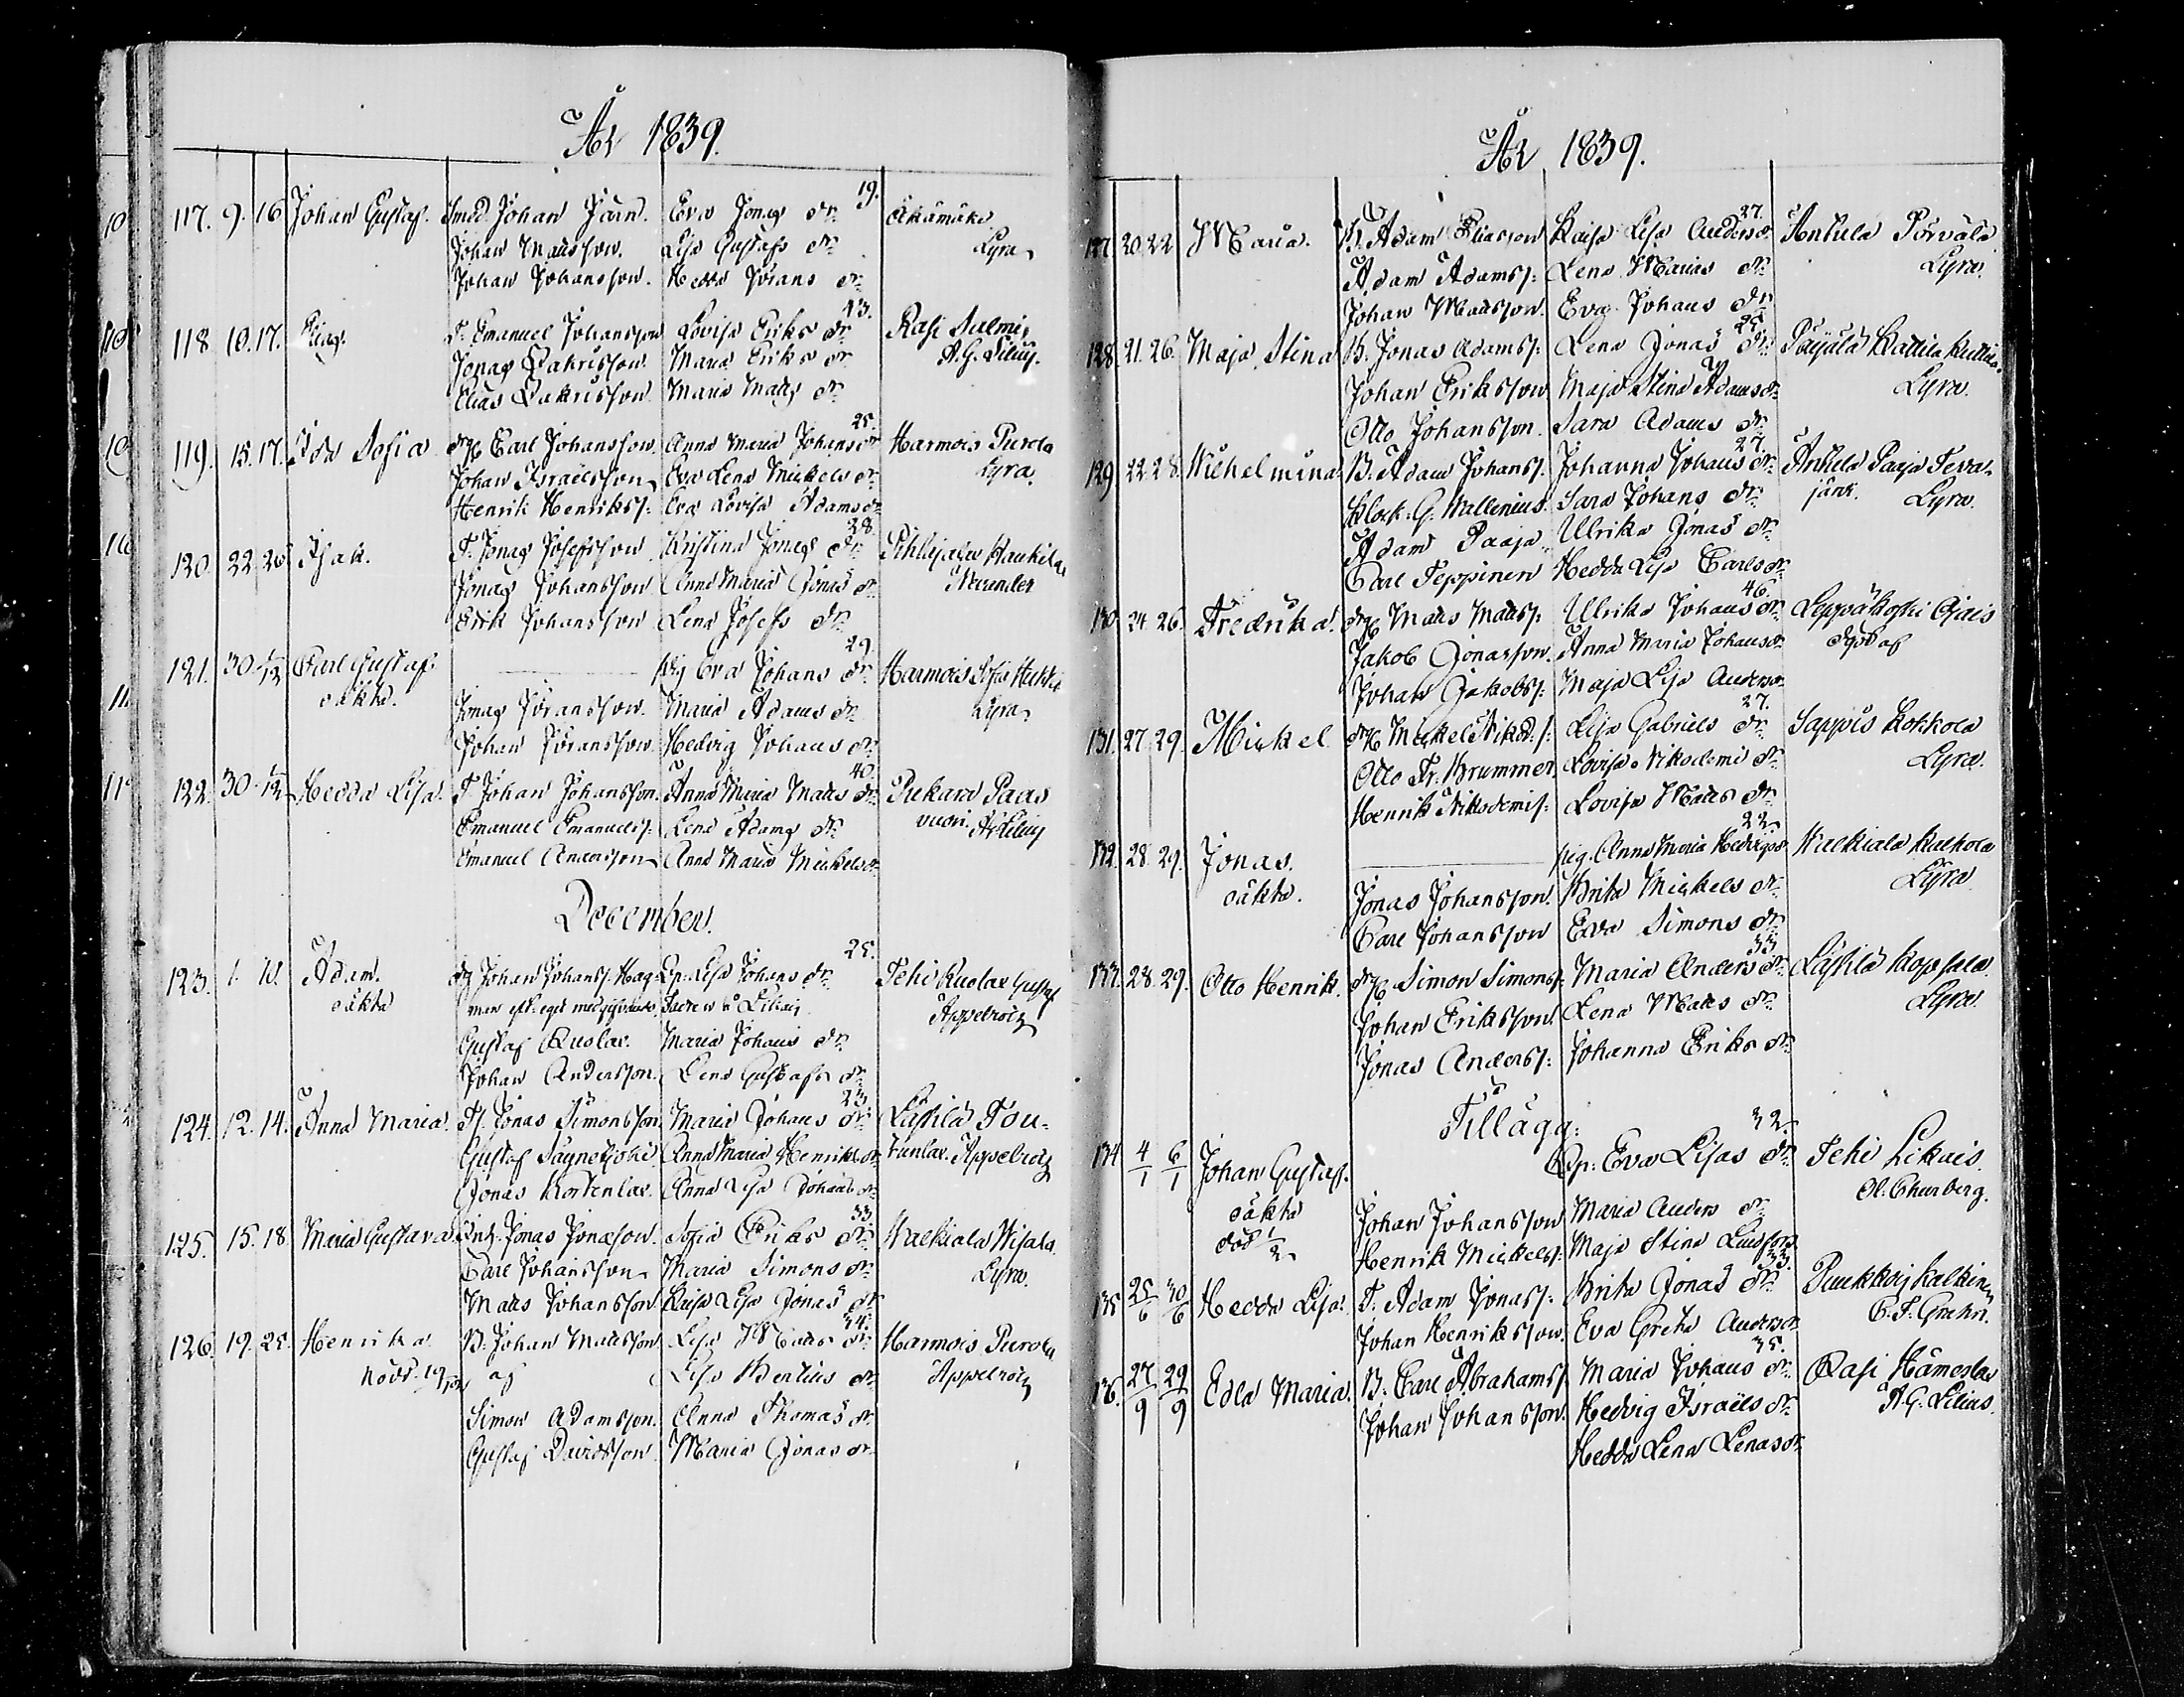 År 1839.
117. 9. 16 Johan Gustaf. Smed Johan Järn. Eva Jonas dr 19. Äkämäki
Johan Mattsson. Lisa Gustafs dr Lyra
Johan Johansson. Hedda Jörans dr
118 10. 17. Elias. T. Emanuel Johansson Lovisa Eriks dr 43. Rasi Salmi
Jonas Sakrisson. Maria Eriks dr A. G. Lilius.
Elias Sakrisson. Maria Matts dr
119. 15. 17. Ida Sofia drg Carl Johansson. Anna Maria Johans dr 25. Harmois Purola
Johan Israelsson Eva Lena Mickels dr Lyra
Henrik Henrikss: Eva Lovisa Adams dr
120. 22. 26 Isak. T. Jonas Josefsson Kristina Jonas dr 28. Pihlajasa Haukila
Jonas Johansson Anna Maria Jonas dr
Erik Johansson Lena Josefs dr
121. 30. 1/12 Carl Gustaf. Pig Eva Johans dr 29. Harmois Sofia
oäkta. Jonas Jöransson. Maria Adams dr Lyra
Johan Jöransson. Hedvig Johans dr
122. 30. 1/12 Hedda Lisa. T. Johan Johansson. Anna Maria Matts dr 40. Pukara Paas
Emanuel Emanuelss: Lena Adams dr vuori. A. Lilius
Emanuel Andersson Anna Maria Mickels dr
December.
123. 1. 10. Adam. dg Johan Johans. Hag. Qp. Lisa Johans dr 25. Jehi Ruolax Gustaf
oäkta man eft. eget medgifvande, Appelroth
Gustaf Ruolax. Maria Johans dr
Johan Andersson. Lena Gustafs dr
124. 12. 14. Anna Maria. Tp. Jonas Simonsson Maria Johans dr 23. Läsilä Tou=
Gustaf Säynetjoki. Anna Maria Henriks dr tunlax. Appelroth
Jonas Kortenlax. Anna Lisa Johans dr
125. 15. 18. Maria Gustava. Jonas Jonasson. Sofia Eriks dr 33. Walkiala Wisala
Carl Johansson Maria Simons dr Lyra.
Matts Johansson. Kaisa Lisa Jonas dr
126. 19. 25. Henrika B. Johan Mattsson Lisa Matts dr 34. Harmois Purola
Nödd. 19 af Lisa Bertils dr Appelroth
Simon Adamsson. Anna Thomas dr
Gustaf Davidsson. Maria Jonas dr
År 1839.
127. 20. 22 Maria. B. Adam Eliasson Kaisa Lisa Anders dr 27. Anttila Pörvälä
Adam Adamss: Lena Marias dr Lyra.
Johan Mattsson. Eva Johans dr
128. 21. 26. Maja Stina B. Jonas Adamss: Lena Jonas dr 25. Päijälä Kattila
Johan Eriksson Maja Stina Adams dr Lyra.
Otto Johansson. Sara Adams dr
129 22. 28. Wilhelmina. B. Adam Johanss. Johanna Johans dr 27. Anttila Paaja Teva-
Klock. G. Wallenius. Sara Johans dr järvi. Lyra.
Adam Paaja. Ulrika Jonas dr
Carl Teppinen Hedda Lisa Carls dr
130 24. 26. Fredrika. drg Matts Mattss: Ulrika Johans dr 46. Leppäkoski Ojais
Jakob Jonasson. Anna Maria Johans dr
Johan Jakobss: Maja Lisa Anders dr
131. 27. 29. Mickel drg Mickel Nikod. s: Lisa Gabriels dr 27. Sappis Kokkola
Otto Fr. Brummer. Lovisa Nikodemi dr Lyra.
Henrik Nikodemis: Lovisa Matts dr
132. 28. 29. Jonas. pig. Anna Maria Hedvigs dr 22. Walkiala Kulkola
oäkta. Jonas Johansson. Brita Mickels dr Lyra
Carl Johansson Eva Simons dr
133. 28. 29. Otto Henrik. drg Simon Simonss: Maria Anders dr 33. Läsilä Kopsala.
Johan Eriksson. Lena Matts dr Lyra.
Jonas Anderss: Johanna Eriks dr
Tillägg:
134 4/1 6/1 Johan Gustaf. Qp: Eva Lisas dr 32. Jehi Likais.
oäkta Johan Johansson Maria Anders dr
död 1/2 Henrik Mickelss: Maja Stina Lindfors.
135 25/6 30/6 Hedda Lisa. T. Adam Jonass: Brita Jonas dr 33. Puukkois Kalkinen
Johan Henriksson. Eva Greta Anders dr
136. 27/9 29/9 Edla Maria. B. Carl Abrahams Maria Johans dr 35. Rasi Hämeslax
Johan Johansson. Hedvig Israels dr A. G. Lilius.
Hedda Lena Lenas dr